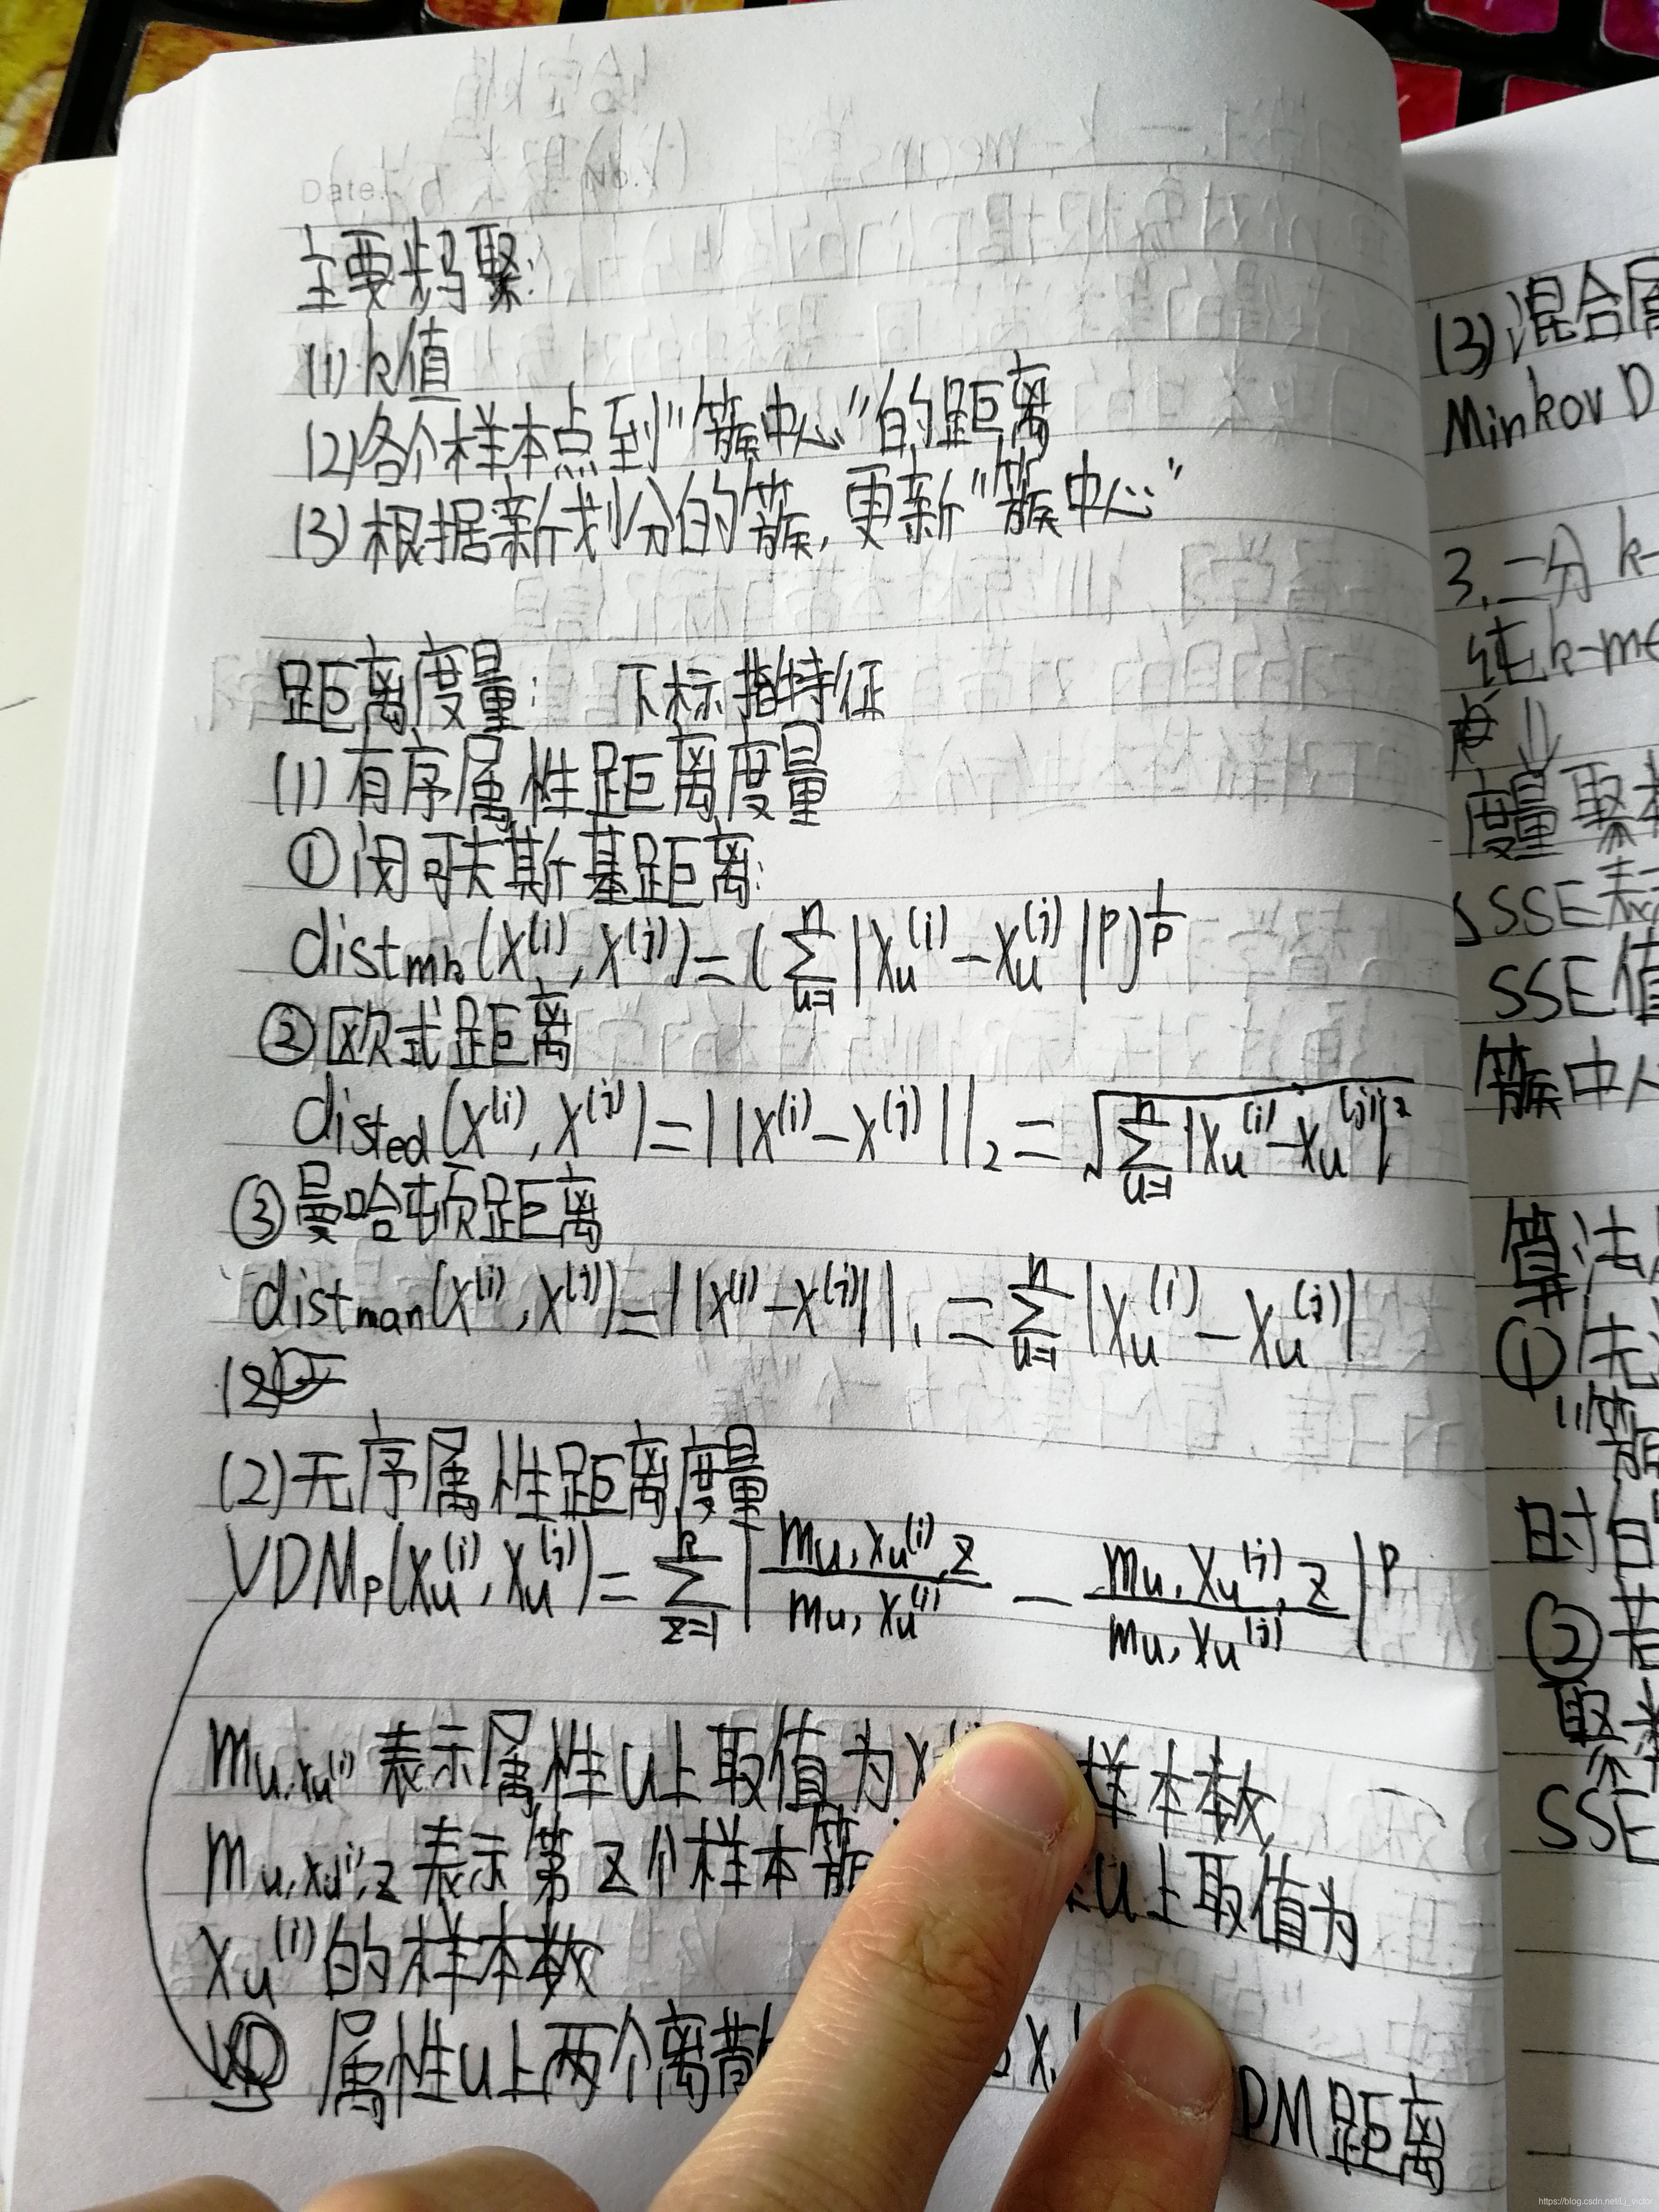 Date. No.
主要步骤:
(1) k值
(2)各个样本点到"簇中心"的距离
(3)根据新划分的簇,更新"簇中心"
距离度量: 下标指特征
(1)有序属性距离度量
①闵可夫斯基距离:
dist_mk(x^(i), x^(j))=(∑_{u=1}^{n}|x_u^(i)-x_u^(j)|^p)^{1/p}
②欧式距离
dist_ed(x^(i), x^(j))=||x^(i)-x^(j)||_2=√(∑_{u=1}^{n}|x_u^(i)-x_u^(j)|^2)
③曼哈顿距离
dist_man(x^(i), x^(j))=||x^(i)-x^(j)||_1=∑_{u=1}^{n}|x_u^(i)-x_u^(j)|
(2)
(2)无序属性距离度量
VDM_p(x_u^(i), x_u^(j))=∑_{z=1}^{k}|m_{u,x_u^(i),z}/m_{u,x_u^(i)} - m_{u,x_u^(j),z}/m_{u,x_u^(j)}|^p
m_{u,x_u^(i)} 表示属性u上取值为x 样本数,
m_{u,x_u^(i),z} 表示第z个样本簇 u上取值为
x_u^(i)的样本数
属性u上两个离散 x DM距离
(3)混合属
MinkovD
3.二分k-
纯k-me
度量聚
SSE表示
SSE值
簇中心
算法
①先
"簇
时
②若
取
SSE
https://blog.csdn.net/Lj_victor